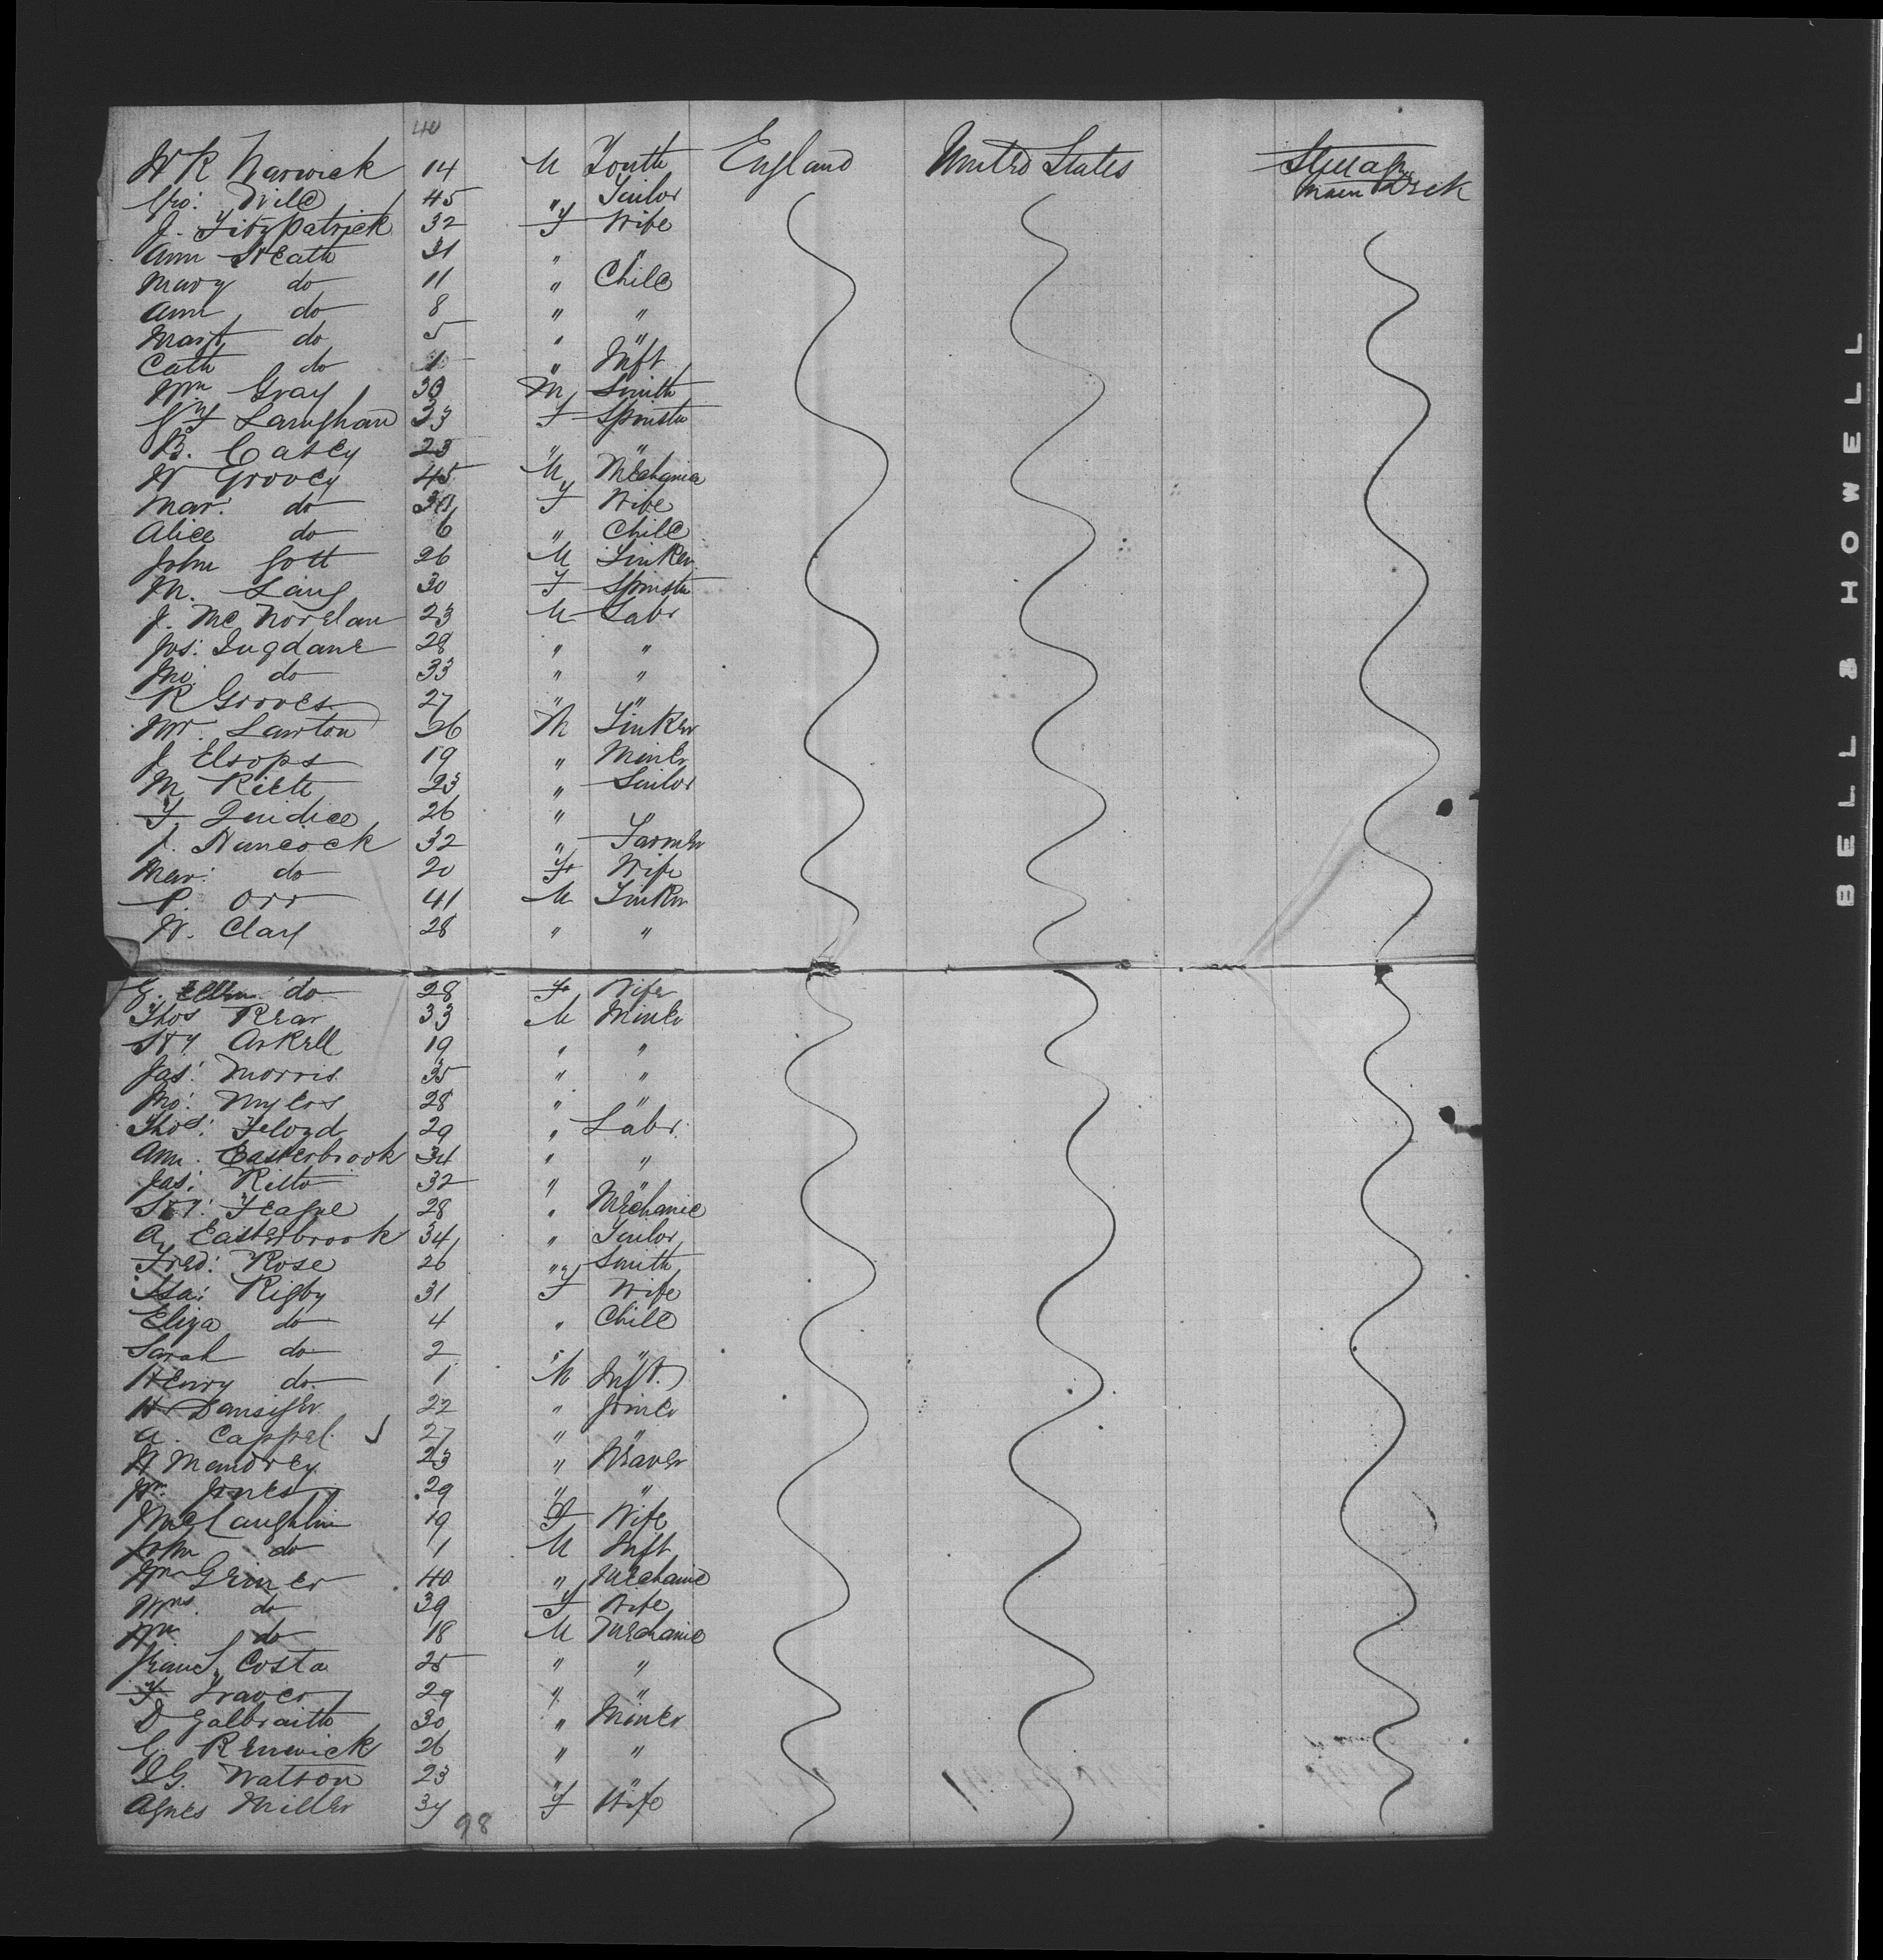 40
W R Warwick 14 M Youth England United States Steerage
Main Deck
Geo: Wild 45 " Tailor
J. Fitzpatrick 32 F Wife
Ann Heath 31 " "
Mary do 11 " Child
Ann do 8 " "
Margt do 5 " "
Cath do 1 " Inft
Wm Gray 30 M Smith
Langhan 33 F Spinstr
B. Casey 23 " "
W Groocy 45 M Mechanic
Mar: do 30 F Wife
Alice do 6 " Child
John Gott 26 M Tinker
M. Lang 30 F Spinstr
J. McNorelan 23 M Labr
Jos: Dugdane 28 " "
Jno: do 33 " "
R Groves 27 " "
Wm Lawton 26 M Tinker
J Elsops 19 " Miner
M Rieth 23 " Sailor
F. Jeudice 26 "
J. Hancock 32 " Farmer
Mar: do 20 F Wife
P. Orr 41 M Tinker
W. Clay 28 " "
E. Ellen do 28 F Wife
Thos Rear 33 M Miner
Hy Arkell 19 " "
Jas: Morris 35 " "
Jno: Myers 28 " "
Thos: Floyd 29 " Labr.
Ann. Easterbrook 34 " "
Jas: Kitto 32 " "
Hy: Teague 28 " Mechanic
A Easterbrook 34 " Tailor
Fred: Rose 26 " Smith
Isa: Rigby 31 F Wife
Eliza do 4 " Child
Sarah do 2 " "
Henry do 1 M Inft.
H Dansiger 22 " Joiner
A. Cappel 27 " "
H Mendrey 23 " Weaver
Wm Jones 29 " "
J McLaughlin 19 F Wife
John do 1 M Inft
Wm Geiner 40 " Mechanic
Mrs do 39 F Wife
Wm do 18 M Mechanic
Costa 25 " "
F Traver 29 " "
D Galbraith 30 " Miner
G. Renwick 26 " "
D G. Watson 23 " "
Agnes Miller 34 F Wife
98
BELL & HOWELL